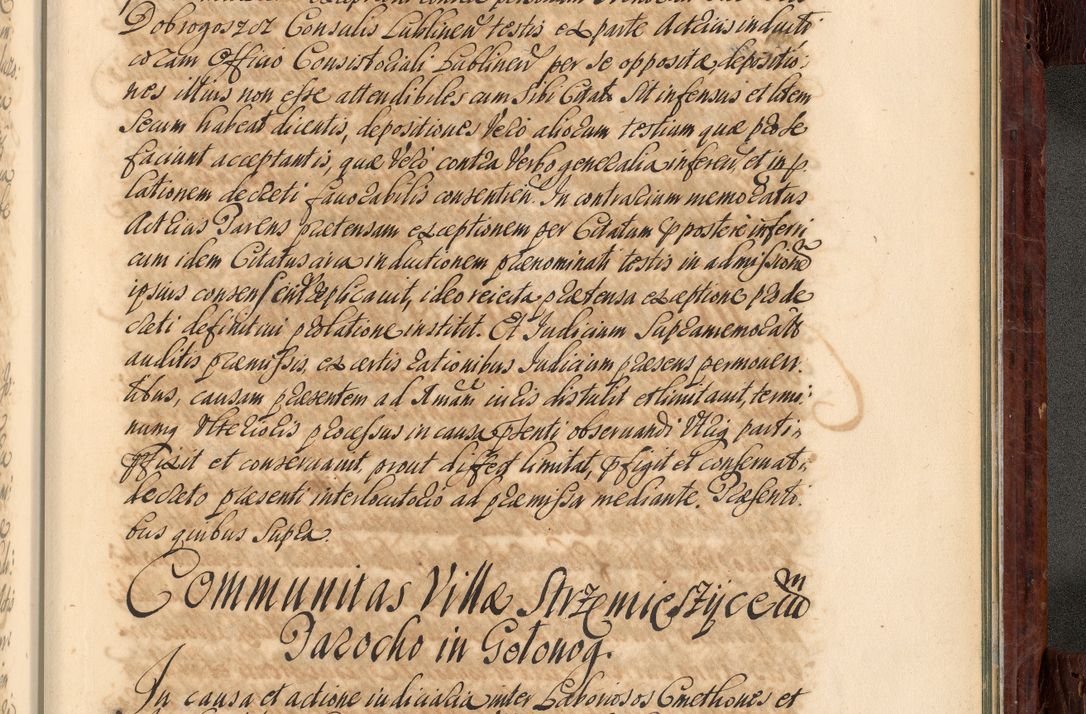 Dobrogoszcz Consulis Lublinen testis ex parte Actricis inducti
coram Officio Consistoriali Lublinen per se opposita, depositio-
nes illius non esse attendibiles cum sibi Citato sit infensus et litem
secum habeat dicentis, depositiones vero aliorum testium quæ pro se
faciunt acceptantis, quæ vero contra verbo generalia inferen, et in p.
lationem decreti favorabilis consentien. In contrarium memoratus
Actricis Parens prætensam exceptionem per Citatum ppostere inferri
cum idem Citatus circa inductionem prænominati testis in admissione
ipsius consensent replicavit, ideo reiecta prætensa exceptione pro de
creti definitivi prolatione institit. Et Iudicium supramemorato
auditis præmissis, ex certis rationibus Iudicium præsens permoven
tibus, causam præsentem ad Amam iuris distulit et limitavit, termi-
numq ulterioris processus in causa psenti observandi utriq parti
pfixit et conservavit, prout differt limitat, pfigit et conservat,
decreto præsenti interlocutorio ad præmissa mediante. Præsenti-
bus quibus supra.
Communitas Villæ Strzemieszyce cum
Parocho in Gołonog.
In causa et actione iudicialia inter Laboriosos Cmethones et